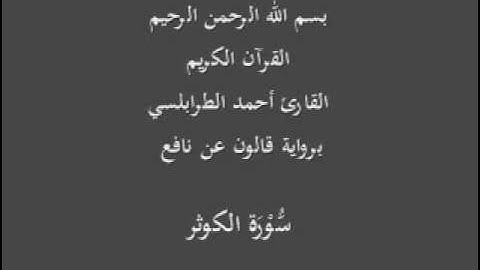 بسم الله الرحمن الرحيم
القرآن الكريم
القارئ أحمد الطرابلسي
برواية قالون عن نافع
سُّوْرَة الكوثر